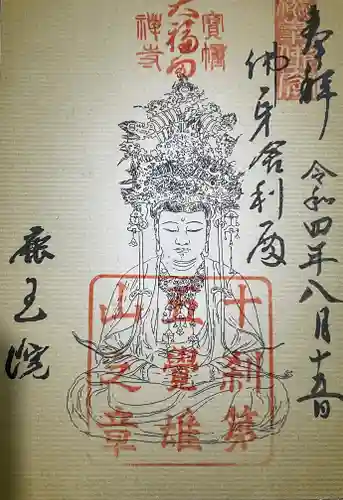 奉拝
令和四年八月十五日
佛牙舍利殿
鹿王院
大福田
寶幢
禪寺
十刹第
五覺雄
山之章